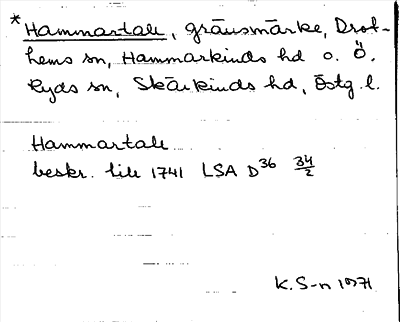 * Hammartall, gränsmärke, Drot-
hems sn, Hammarkinds hd o. Ö.
Ryds sn, Skärkinds hd, Östg. l.
Hammartall
beskr. till 1741 LSA D36 34/2
K. S-n 1971